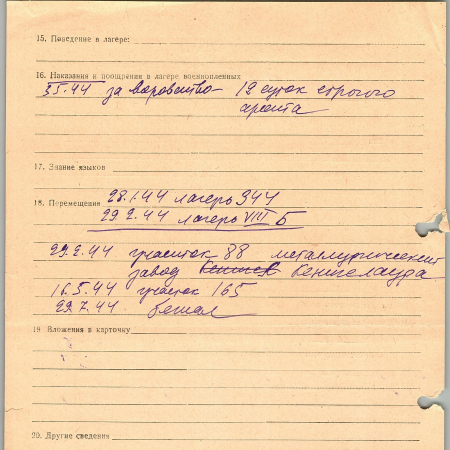 15. Поведение в лагере:
16. Наказания и поощрения в лагере военнопленных
44 за воровство - 12 суток строгого
ареста
17. Знание языков
18. Перемещения 28.1.44 лагерь 344
29.2.44 лагерь VIII Б
29.2.44 участок 88 металлургический
завод Кенигслауда
16.5.44 участок 165
29.7.44 бежал
19 Вложения в карточку
20. Другие сведения